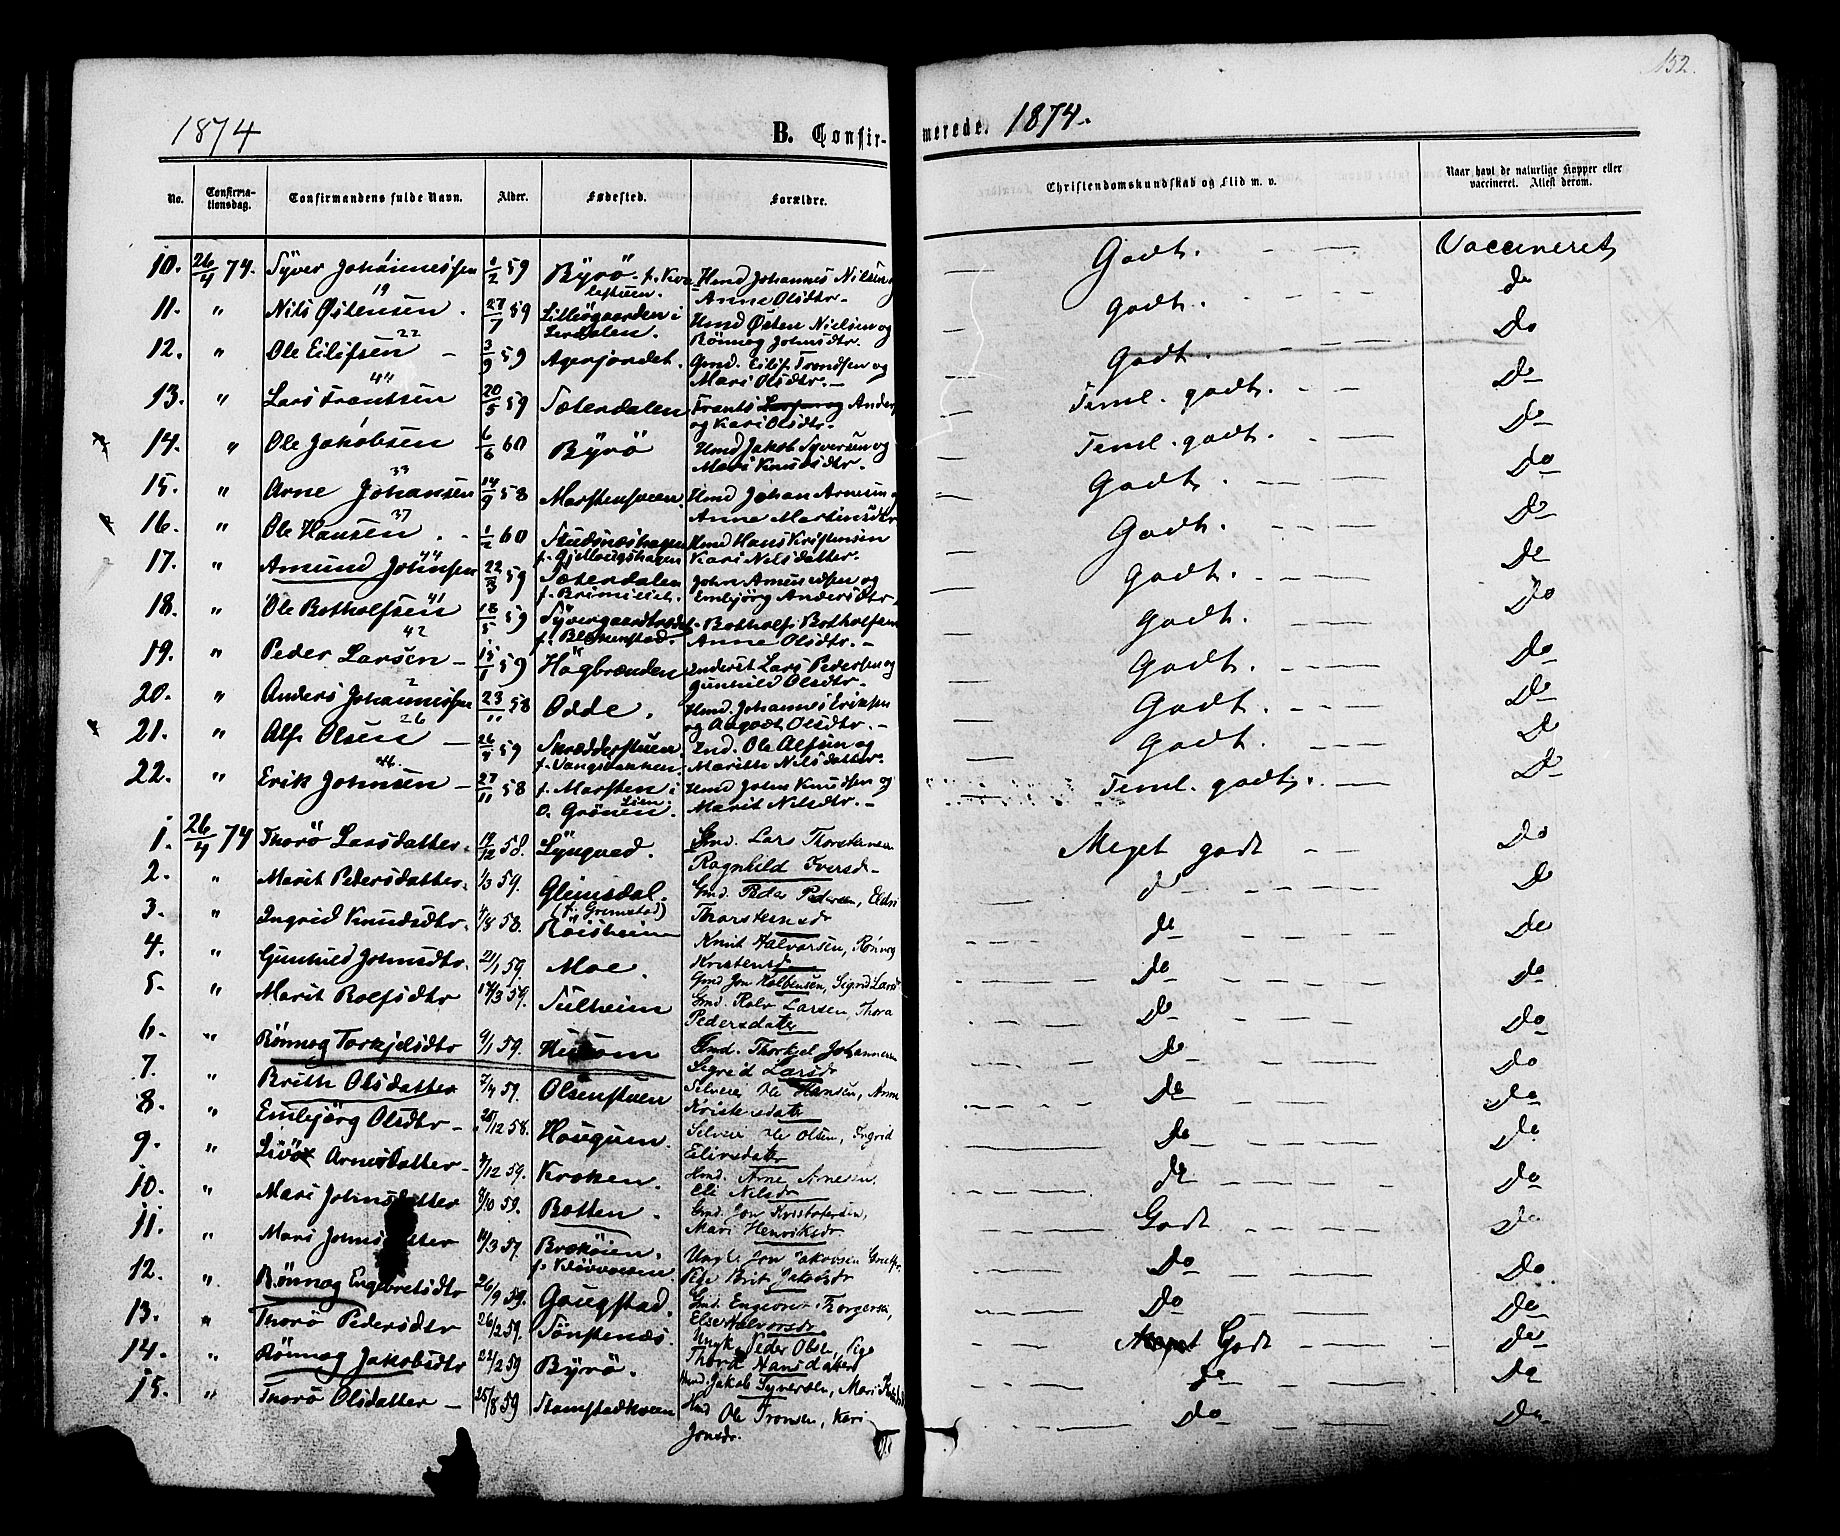 152.
1874 B. Confirmerede. 1874.
No. Confirmationsdag. Confirmandens fulde Navn. Alder. Fødested. Forældre. Christendomskundskab og Flid m. v. Naar havt de naturlige Kopper eller vaccineret. Attest derom.
10. 26/4 74. Syver Johannessen 1/2 59 Byrö f. Kvalestuen. Hmd Johannes Nilsen og Anne Olsdtr. Godt. Vaccineret
19
11. " Nils Østensen. 27/7 59 Lillesgaarden i Lerdalen. Hmd Østen Nielsen og Rönnog Johnsdtr. Godt. do
22
12. " Ole Eilifsen 3/9 59 Agerjordet. Gmd. Eilif Trondsen og Mari Olsdtr. Godt. Do
44
13. " Lars Frantsen 20/5 59 Sæterdalen Frants Anders og Kari Olsdtr. Teml. godt. Do
14. " Ole Jakobsen 6/6 60 Byrö Hmd Jakob Syversen og Mari Knudsdtr. Teml. godt. Do
33
15. " Arne Johansen 14/9 58 Marstensveen. Hmd Johan Arnesen og Anne Martinsdtr Godt. Do
37
16. " Ole Hansen. 1/2 60 Hmd Hans Kristensen Kari Nilsdatter. Godt. Do
44
17. " Amund Johnsen 22/3 59 Sæterdalen John Amundsen og Embjörg Andersdtr. Godt. Do
41
18. " Ole Botholfsen 18/5 59 Botholf Botholfsen Anne Olsdtr. Godt. Do
42
19. " Peder Larsen 15/1 59 Högbrænden Inderst Lars Pedersen og Gunhild Olsdtr. Godt. Do
2
20. " Anders Johannessen 23/11 58 Odde. Hmd. Johannes Eriksen og Aagodt Olsdtr. Godt. Do
26
21. " Alf Olsen 26/4 59 Skrædderstuen Ind. Ole Alfsen og Marithe Nilsdatter. Godt. Do
46.
22. " Erik Johnsen 27/11 58 f. Marsten i Ö. Grönen. Hmd John Knudsen og Marit Nilsdtr. Teml. godt. Do
1. 26/4 74 Thorö Larsdatter. 19/12 58. Lyngved. Gmd. Lars Thorstensen Ragnhild Iversd. Meget godt Do
2. " Marit Pedersdatter. 1/3 59. Glimsdal. (f. Grimstad) Gmd. Peder Pedersen, Eldri Thorstensdr do Do
3. " Ingrid Knudsdtr. 4/8 58. Röisheim Knut Halvorsen, Rönnog Kristensd do Do
4. " Gunhild Johnsdtr. 21/1 59. Moe. Gmd Jon Kolbensen, Sigrid Larsd Do Do
5. " Marit Rolfsdtr 17/3 59. Sulheim Gmd. Rolv Larsen, Thora Pedersdater Do Do
6. " Rönnog Torkjelsdtr 9/1 59. Husom Gmd. Thorkjel Johannesen Sigrid Larsdr Do Do
7. " Brithe Olsdatter 7/4 59. Olsenstuen Selveier Ole Hansen, Anne Kristensdater Do Do
8. " Embjörg Olsdtr 28/12 58. Hougum. Selveier Ole Olsen, Ingrid Eilivsdater Do Do
9. " Livö Arnesdatter 4/12 59. Kroken. Hmd. Arne Arnesen. Eli Nilsdr do Do
10. " Mari Johnsdatter 8/10 59. Botten. Gmd. Jon Kristofersen, Mari Henriksdr Godt Do
11. " Mari Johnsdatter 14/3 59. Ungk. Jon Jakobsen Pige Brit Jakobsdr Do Do
12. " Rönnog Engebretsdtr 26/9 59. Gaugstad. Gmd. Engebret Thorgersen, Else Halvorsdr Do Do
13. " Thorö Pedersdtr 26/2 59. Sönstenæs. Ungk. Peder Olsen, Pige Thora Hansdater Meget Godt Do
14. " Rönnog Jakobsdtr 22/2 59 Byrö. Hmd. Jakob Syversen, Mari Knudsd do Do
15. " Thorö Olsdatter 25/8 59 Stamstadkveen Hmd Ole Tronsen, Kari Jonsdr. Do Do